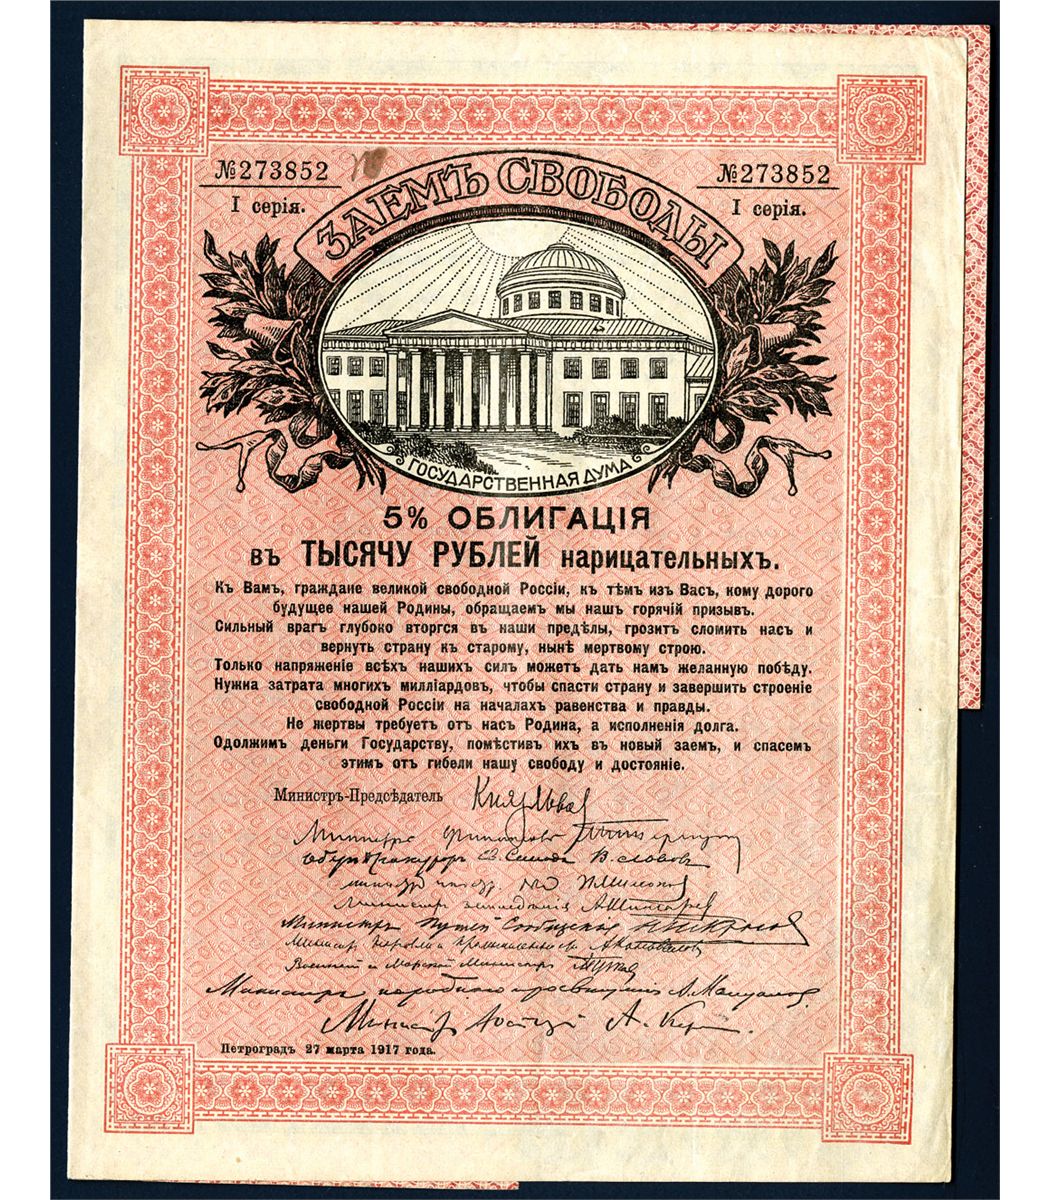 №273852 №273852
I серія. I серія.
ЗАЕМЪ СВОБОДЫ
ГОСУДАРСТВЕННАЯ ДУМА
5% ОБЛИГАЦІЯ
въ ТЫСЯЧУ РУБЛЕЙ нарицательныхъ.
Къ Вамъ, граждане великой свободной Россіи, къ тѣмъ изъ Васъ, кому дорого
будущее нашей Родины, обращаемъ мы нашъ горячій призывъ.
Сильный врагъ глубоко вторгся въ наши предѣлы, грозитъ сломить насъ и
вернуть страну къ старому, нынѣ мертвому строю.
Только напряженіе всѣхъ нашихъ силъ можетъ дать намъ желанную побѣду.
Нужна затрата многихъ милліардовъ, чтобы спасти страну и завершить строеніе
свободной Россіи на началахъ равенства и правды.
Не жертвы требуетъ отъ насъ Родина, а исполненія долга.
Одолжимъ деньги Государству, помѣстивъ ихъ въ новый заемъ, и спасемъ
этимъ отъ гибели нашу свободу и достояніе.
Министръ-Предсѣдатель Князь Львов
Министръ финансовъ
Оберъ Прокуроръ Св. Синода В. Львовъ
Министръ земледѣлія А Шингарев
Министръ Путей Сообщенія
Министръ Торговли и Промышленности А Коновалов
Военный и Морской Министръ
Министръ народного просвѣщенія А. Мануйлов
Министр Юстиціи А. Кер
Петроградъ 27 марта 1917 года.